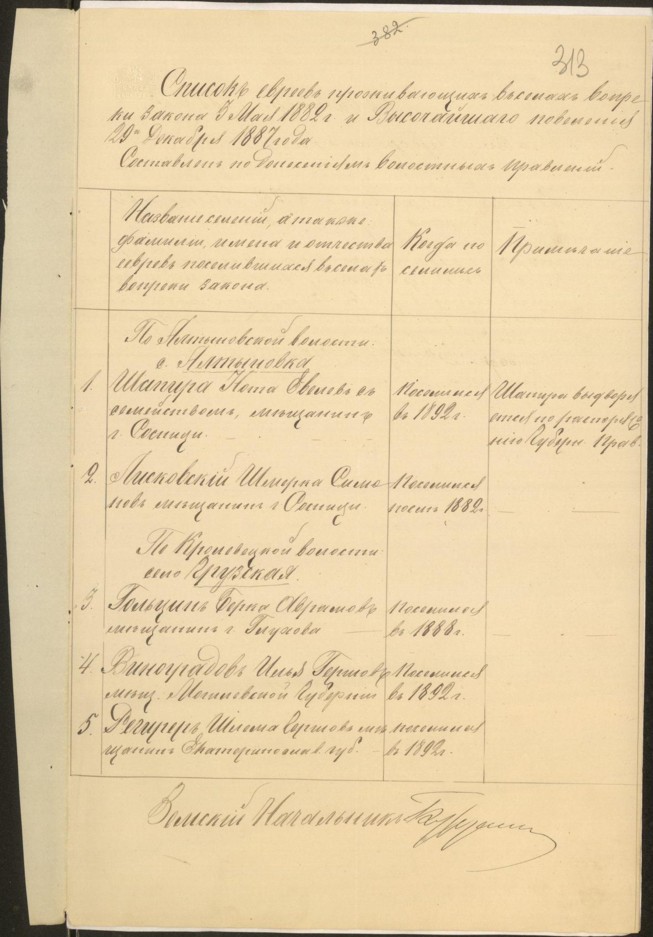 382
313
Списокъ евреевъ проживающихъ въ селахъ вопре-
ки закона 3 Мая 1882 г и Высочайшаго повеленія
29го Декабря 1887 года
Составленъ по донесеніямъ волостныхъ правленій.
Названіе селеній, а также
фамиліи, имена и отчества
евреевъ поселившихся въ селахъ
вопреки закона.
Когда по
селились
Примѣчаніе
По Алтыновской волости.
с. Алтыновка
1. Шапира Нота Евелевъ съ
семействомъ, мѣщанинъ
г Сосницы.
Поселился
въ 1892 г.
Шапира выдворя
ется по распоряже
нію Губерн Прав.
2. Лисковскій Шмерка Симо
новъ мѣщанинъ г Сосницы.
Поселился
послѣ 1882 г
По Кролевецкой волости
село Грузская.
3. Гольцинъ Берка Абрамовъ
мѣщанинъ г. Глухова
Поселился
въ 1888 г.
4. Виноградовъ Илья Гершовъ
мѣщ. Могилевской Губерніи
Поселился
въ 1892 г.
5. Шлема мѣ
щанинъ Екатеринослав губ.
поселился
въ 1892 г.
Земскій Начальникъ